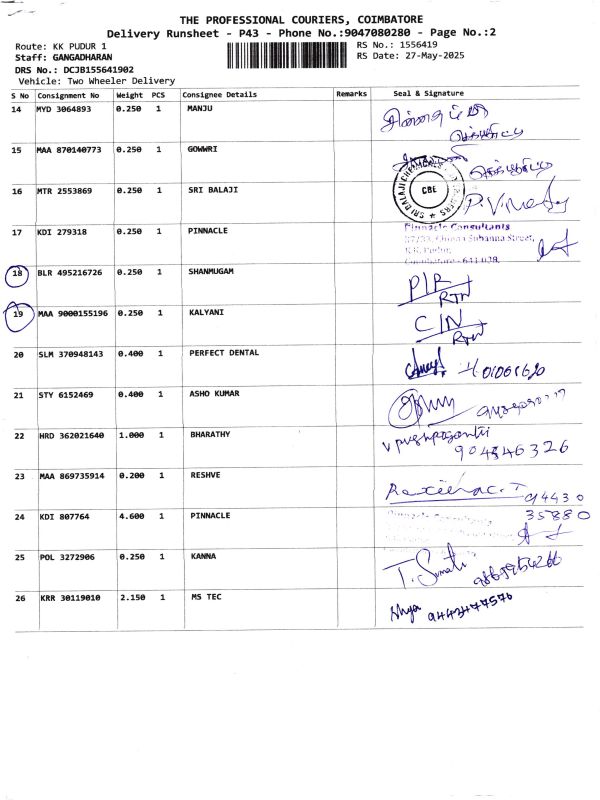 THE PROFESSIONAL COURIERS, COIMBATORE
Delivery Runsheet - P43 - Phone No.:9047080280 - Page No.:2
Route: KK PUDUR 1
RS No.: 1556419
Staff: GANGADHARAN
RS Date: 27-May-2025
DRS No.: DCJB155641902
Vehicle: Two Wheeler Delivery
S No Consignment No Weight PCS Consignee Details Remarks Seal & Signature
14 MYD 3064893 0.250 1 MANJU
15 MAA 870140773 0.250 1 GOWWRI
16 MTR 2553869 0.250 1 SRI BALAJI CBE
17 KDI 279318 0.250 1 PINNACLE Pinnacle Consultants
18 BLR 495216726 0.250 1 SHANMUGAM P/R
RTN
19 MAA 9000155196 0.250 1 KALYANI C/N
RTN
20 SLM 370948143 0.400 1 PERFECT DENTAL
21 STY 6152469 0.400 1 ASHO KUMAR
22 HRD 362021640 1.000 1 BHARATHY
23 MAA 869735914 0.200 1 RESHVE
94430
24 KDI 807764 4.600 1 PINNACLE 35880
25 POL 3272906 0.250 1 KANNA T. Sumathi
26 KRR 30119010 2.150 1 MS TEC 9443477576